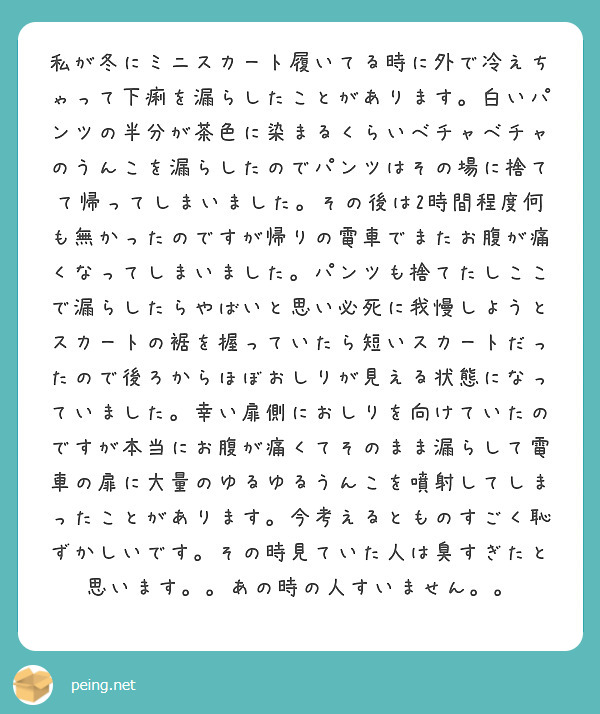 私が冬にミニスカート履いてる時に外で冷えち
ゃって下痢を漏らしたことがあります。白いパ
ンツの半分が茶色に染まるくらいベチャベチャ
のうんこを漏らしたのでパンツはその場に捨て
て帰ってしまいました。その後は2時間程度何
も無かったのですが帰りの電車でまたお腹が痛
くなってしまいました。パンツも捨てたしここ
で漏らしたらやばいと思い必死に我慢しようと
スカートの裾を握っていたら短いスカートだっ
たので後ろからほぼおしりが見える状態になっ
ていました。幸い扉側におしりを向けていたの
ですが本当にお腹が痛くてそのまま漏らして電
車の扉に大量のゆるゆるうんこを噴射してしま
ったことがあります。今考えるとものすごく恥
ずかしいです。その時見ていた人は臭すぎたと
思います。。あの時の人すいません。。
peing.net